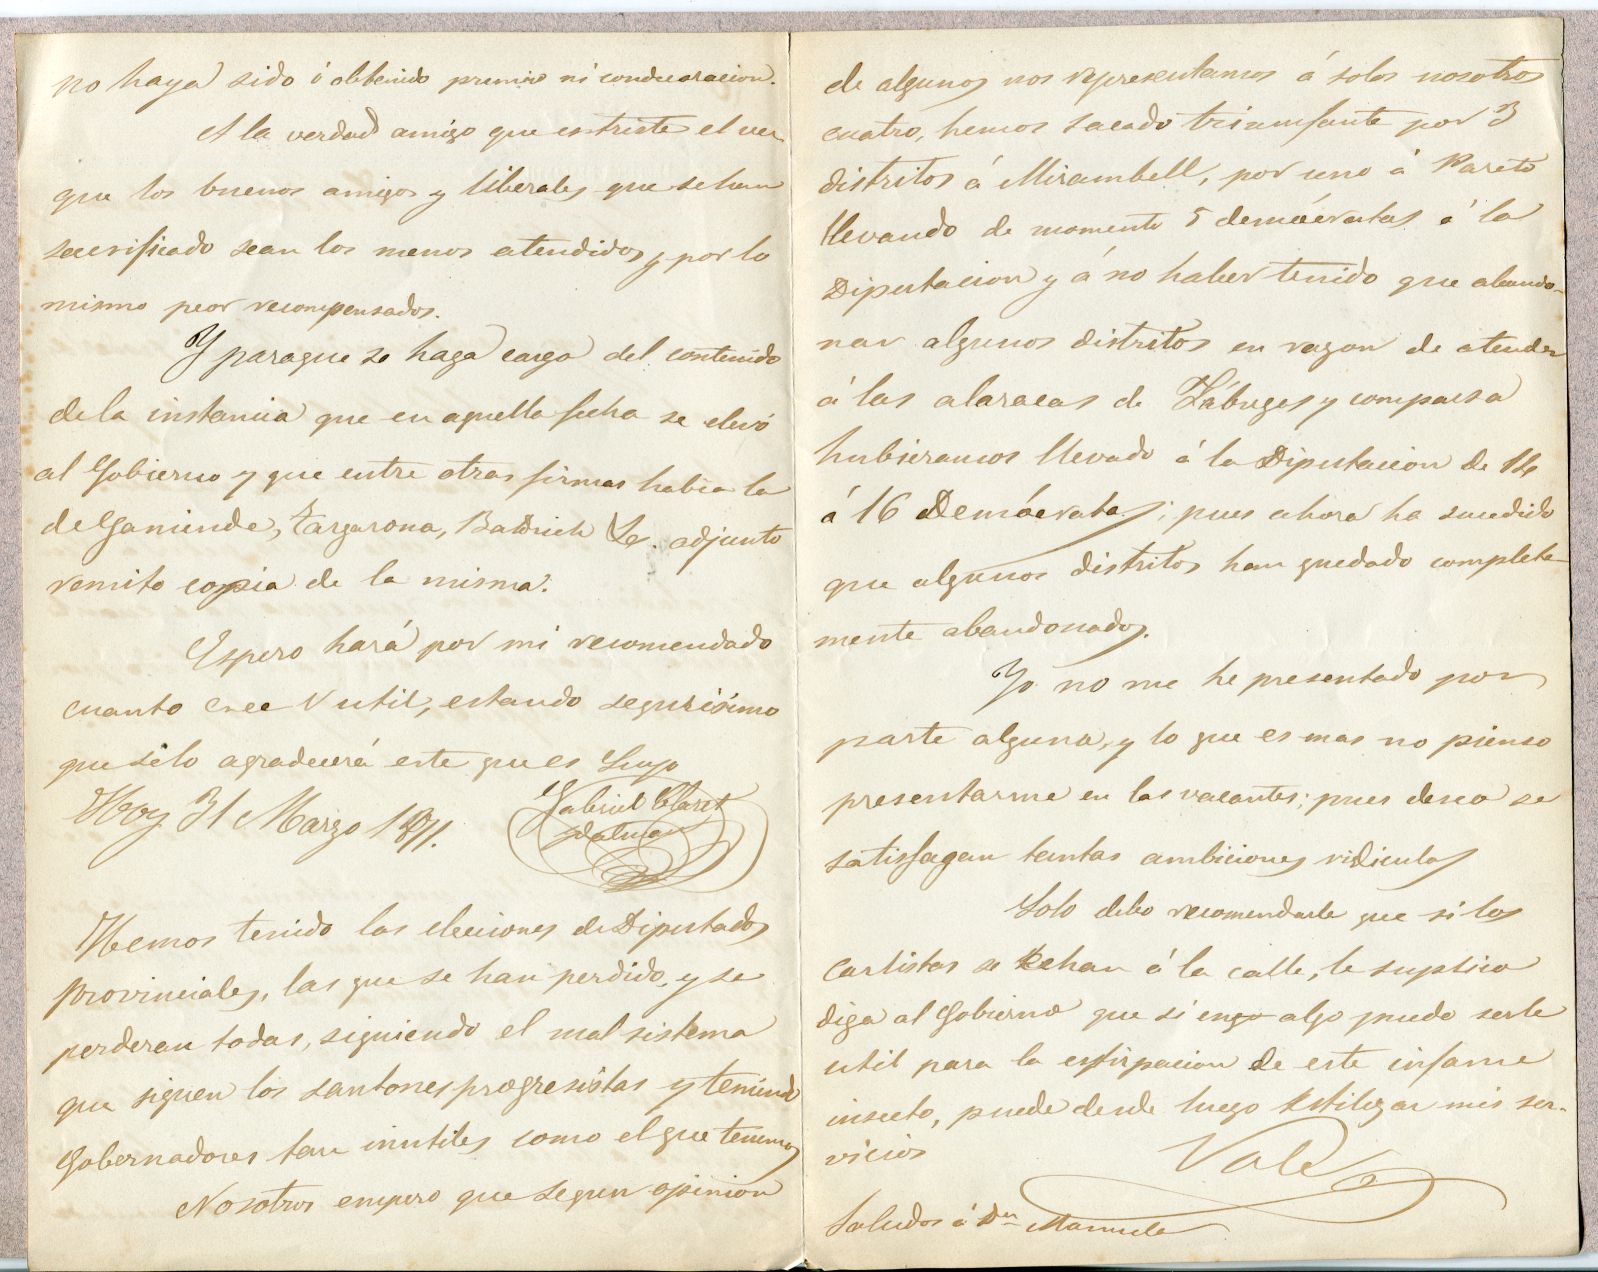 no haya sido ó obtenido premio ni condecoracion.
A la verdad amigo que es triste el ver
que los buenos amigos y liberales que se han
sacrificado sean los menos atendidos y por lo
mismo peor recompensados.
Y paraque se haga cargo del contenido
de la instancia que en aquella fecha se elevó
al Gobierno y que entre otras firmas habia la
de Gaminde, Targarona, Baldrich &c. adjunto
remito copia de la misma.
Espero hará por mi recomendado
cuanto cree V util, estando segurísimo
que se lo agradecerá este que es Suyo
Hoy 31 Marzo 1871.
Gabriel Claret
Dalmau
Hemos tenido las elecciones de Diputados
provinciales, las que se han perdido, y se
perderan todas, siguiendo el mal sistema
que siguen los santones progresistas y teniendo
Gobernadores tan inutiles como el que tenemos
Nosotros empero que segun opinion
de algunos nos representamos á solos nosotros
cuatro, hemos sacado triumfante por 3
distritos á Mirambell, por uno á Pareto
llevando de momento 5 demócratas á la
Diputacion y á no haber tenido que abando-
nar algunos distritos en razon de atender
á las alaracas de y comparsa
hubieramos llevado á la Diputacion de 14
á 16 Demócratas; pues ahora ha sucedido
que algunos distritos han quedado completa-
mente abandonados.
Yo no me he presentado por
parte alguna, y lo que es mas no pienso
presentarme en las vacantes; pues deseo se
satisfagan tantas ambiciones ridiculas
Solo debo recomendarle que si los
carlistas se hechan á la calle, le suplico
diga al Gobierno que si en algo puedo serle
util para la estirpacion de este infame
insecto, puede desde luego utilizar mis ser-
vicios
Vale
Saludos á Dn Manuela